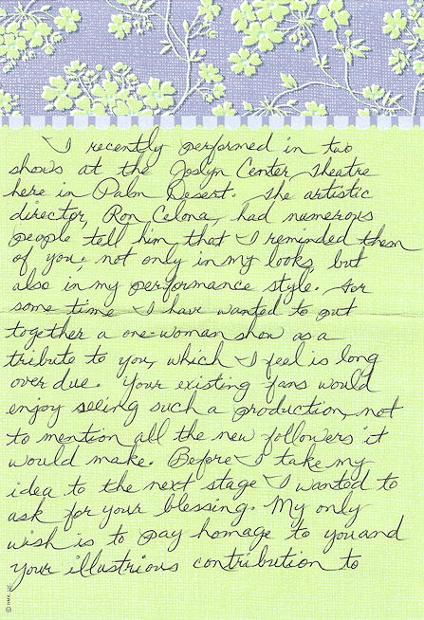 I recently performed in two
shows at the Joslyn Center Theatre
here in Palm Desert. The artistic
director, Ron Celona, had numerous
people tell him that I reminded them
of you, not only in my looks, but
also in my performance style. For
some time I have wanted to put
together a one-woman show as a
tribute to you, which I feel is long
over due. Your existing fans would
enjoy seeing such a production, not
to mention all the new followers it
would make. Before I take my
idea to the next stage I wanted to
ask for your blessing. My only
wish is to pay homage to you and
your illustrious contribution to